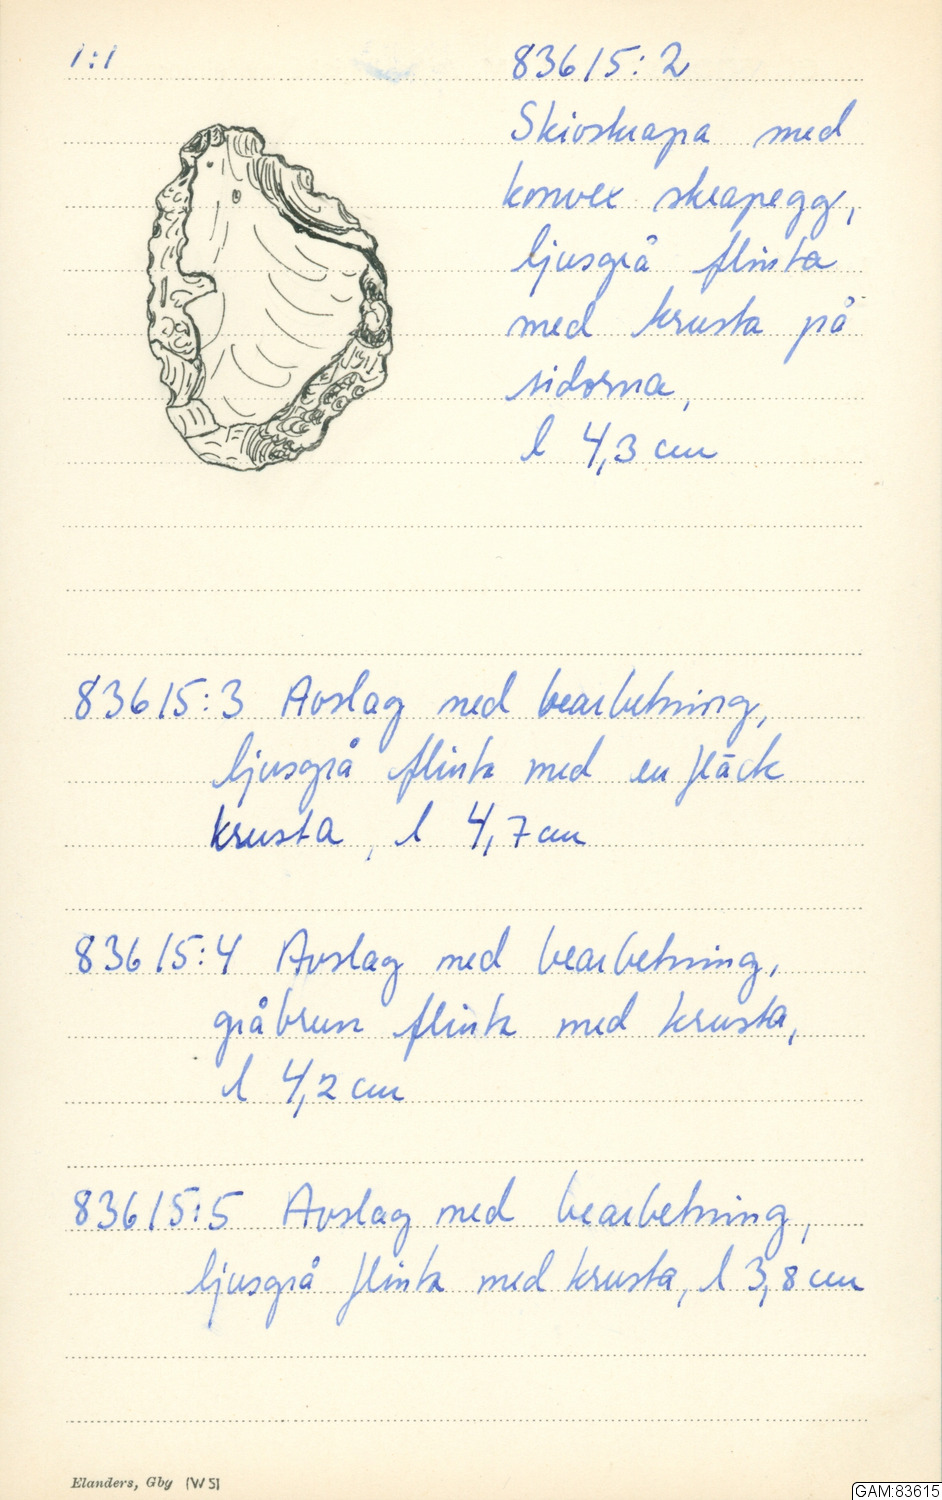 1:1
83615:2
Skivskrapa med
konvex skrapegg,
ljusgrå flinta
med krusta på
sidorna,
l 4,3 cm
83615:3 Avslag med bearbetning,
ljusgrå flinta med en fläck
krusta, l 4,7 cm
83615:4 Avslag med bearbetning,
gråbrun flinta med krusta,
l 4,2 cm
83615:5 Avslag med bearbetning,
ljusgrå flinta med krusta, l 3,8 cm
Elanders, Gby (W 5)
GAM:83615